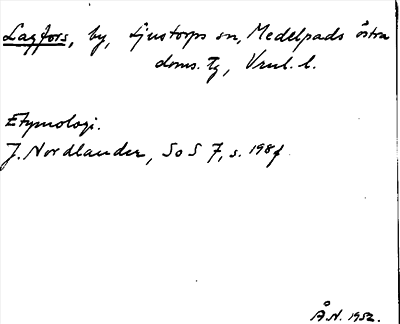 Lagfors, by, Ljustorps sn, Medelpads östra
doms. tg, Vnrl. l.
Etymologi.
J. Nordlander, SoS 7, s. 198f
Å.N. 1952.